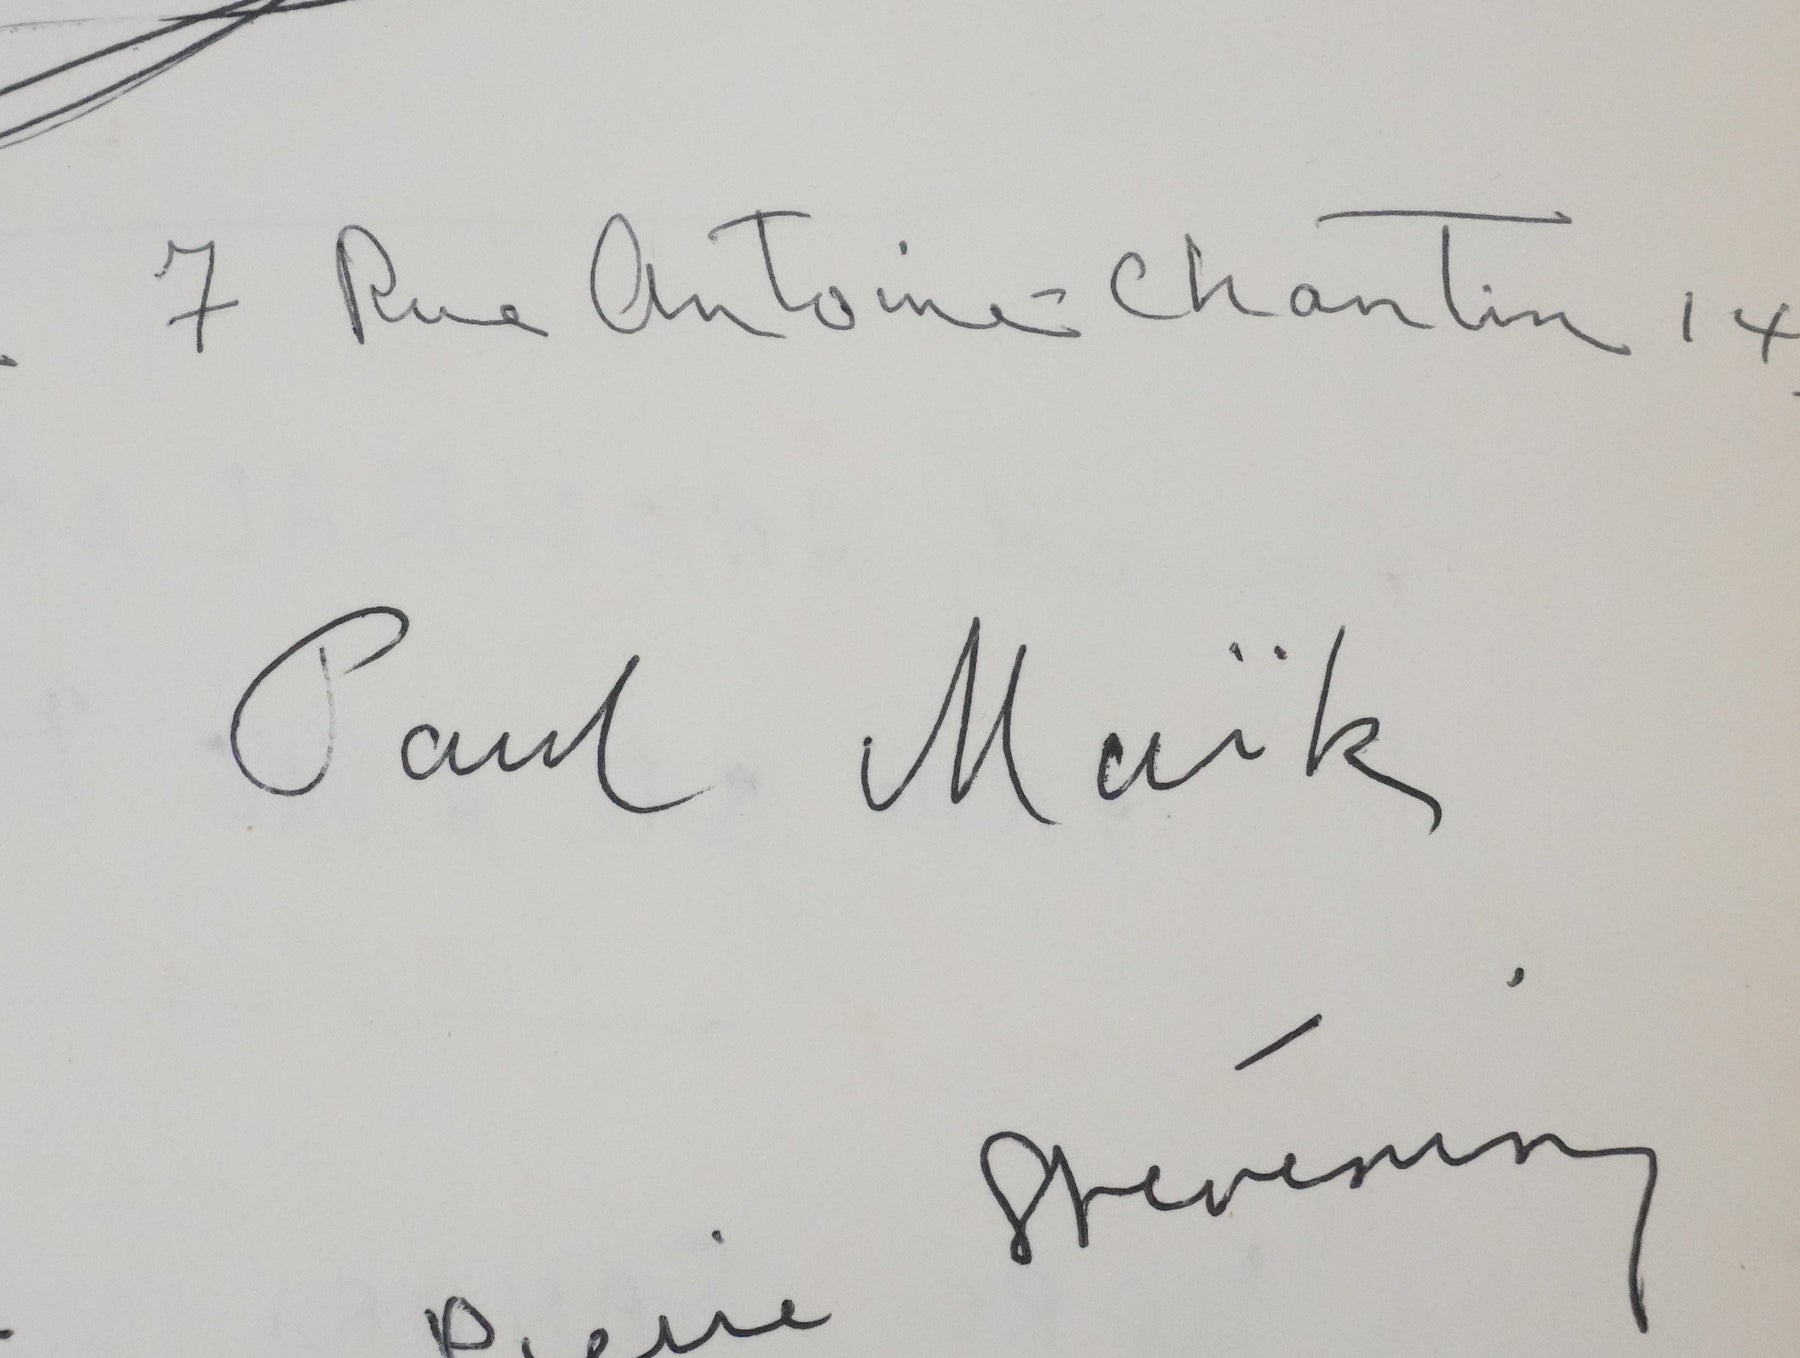 7 Rue Antoine-Chantin 14
Paul Maïk
Stévenin
Pierre